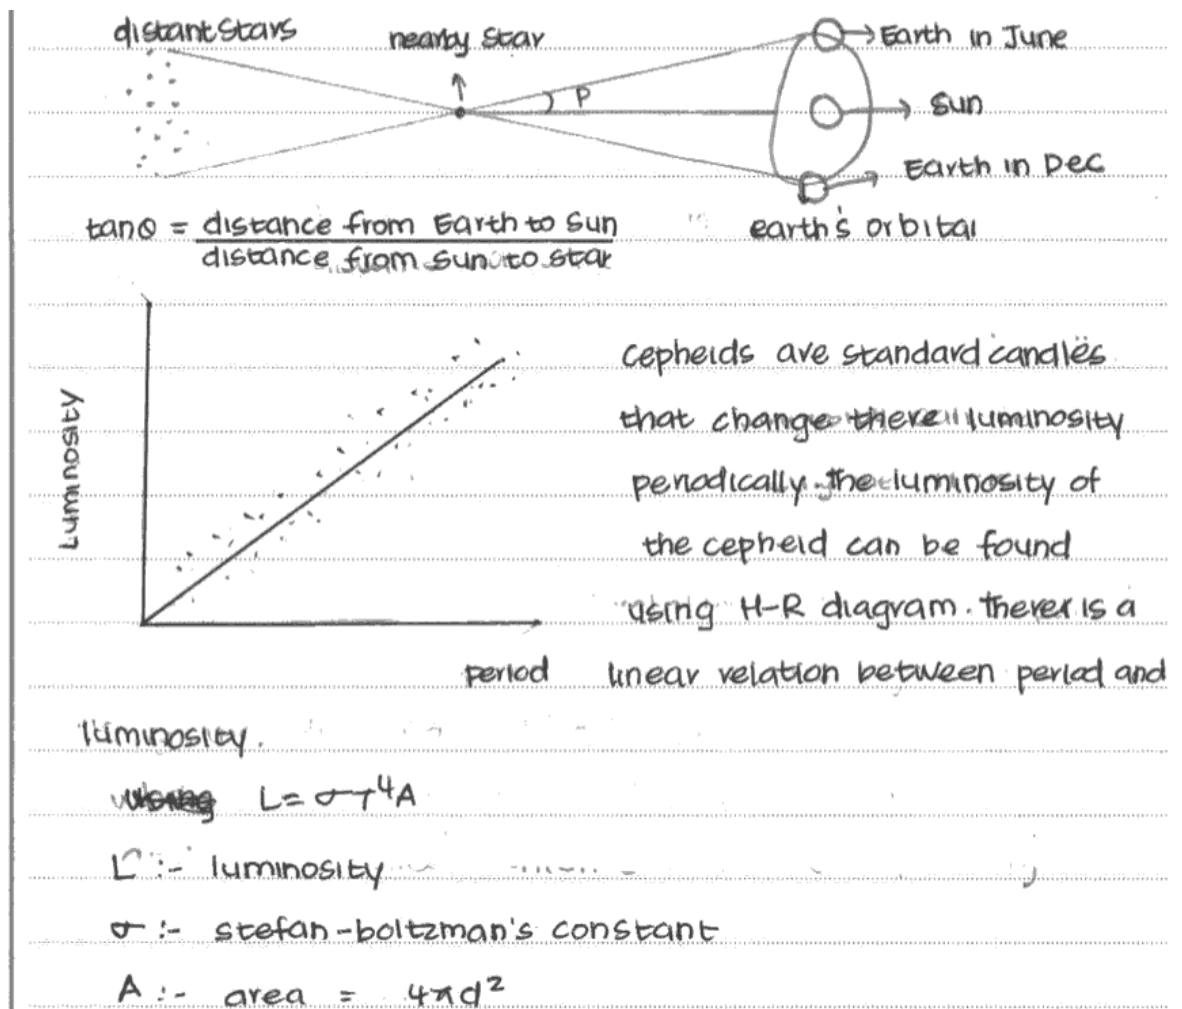 distant stars
nearby star
Earth in June
P
Sun
Earth in Dec
earth's orbital
tanθ = distance from Earth to Sun
distance from Sun to star
Luminosity
period
cepheids are standard candles
that change there luminosity
periodically. The luminosity of
the cepheid can be found
using H-R diagram. there is a
linear relation between period and
luminosity.
L= σT⁴A
L :- luminosity
σ :- stefan-boltzman's constant
A :- area = 4πd²